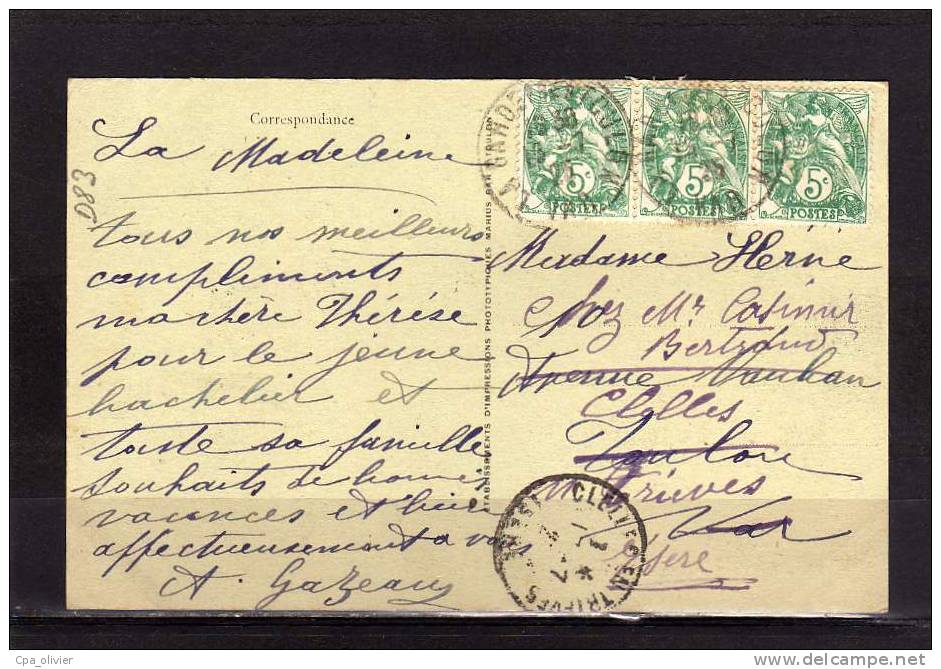 Correspondance
D83
La Madeleine
tous nos meilleurs
compliments
ma chère Thérèse
pour le jeune
bachelier et
toute sa famille
souhaits de bonnes
vacances et bien
affectueusement à vous
A. Gazeau
ETABLISSEMENTS D'IMPRESSIONS PHOTOTYPIQUES MARIUS BAR
5c
POSTES
5c
POSTES
5c
POSTES
Madame Hervé
chez Mr Casimir
Bertrand
Avenue Vauban
Clelles
Toulon
en Trièves
Var
Isère
CLELLES-EN-TRIEVES
Cpa_olivier
www.delcampe.net